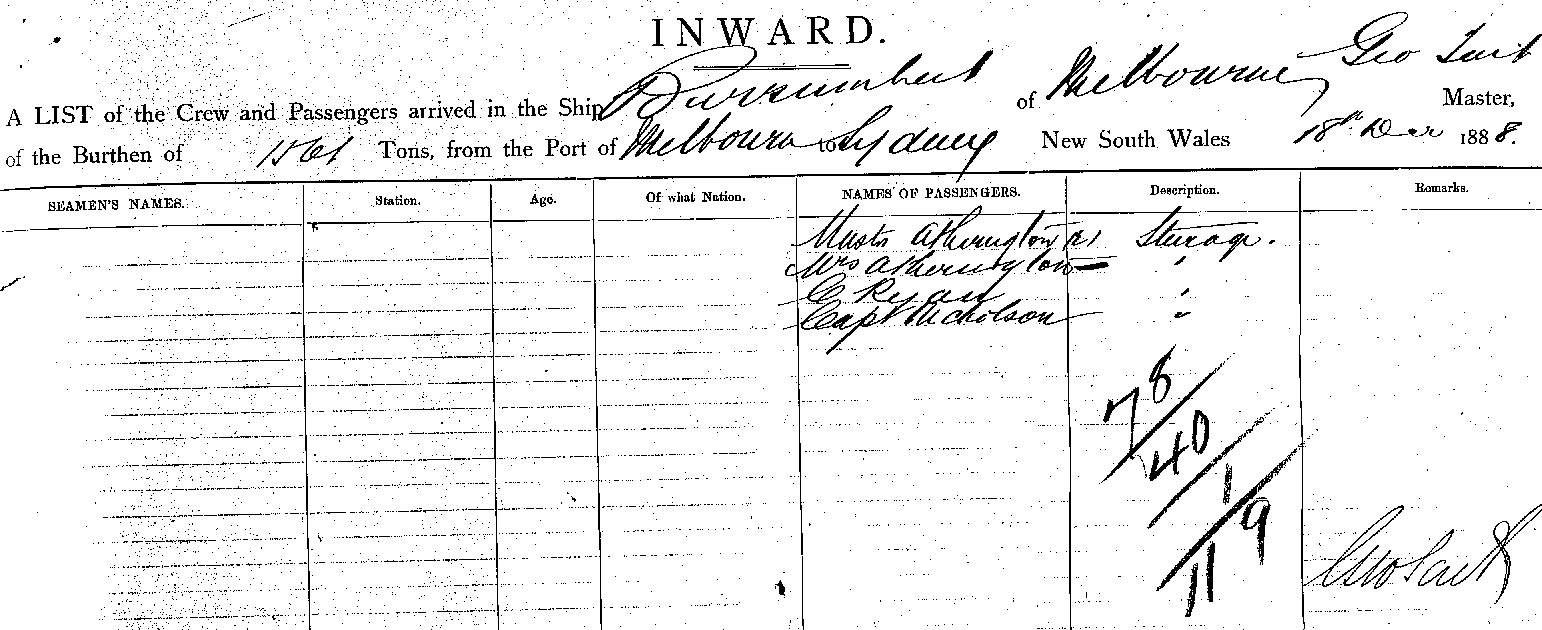 INWARD.
Geo Tait
A LIST of the Crew and Passengers arrived in the Ship Burrumbeet of Melbourne Master,
of the Burthen of Tons, from the Port of Melbourn to Sydney New South Wales 18th Dec 1888.
SEAMEN'S NAMES. Station. Age. Of what Nation. NAMES OF PASSENGERS. Description. Remarks.
Atherington Sterage.
Mrs Atherington "
C Ryan "
Capt Nicholson "
78
40
1
9
11